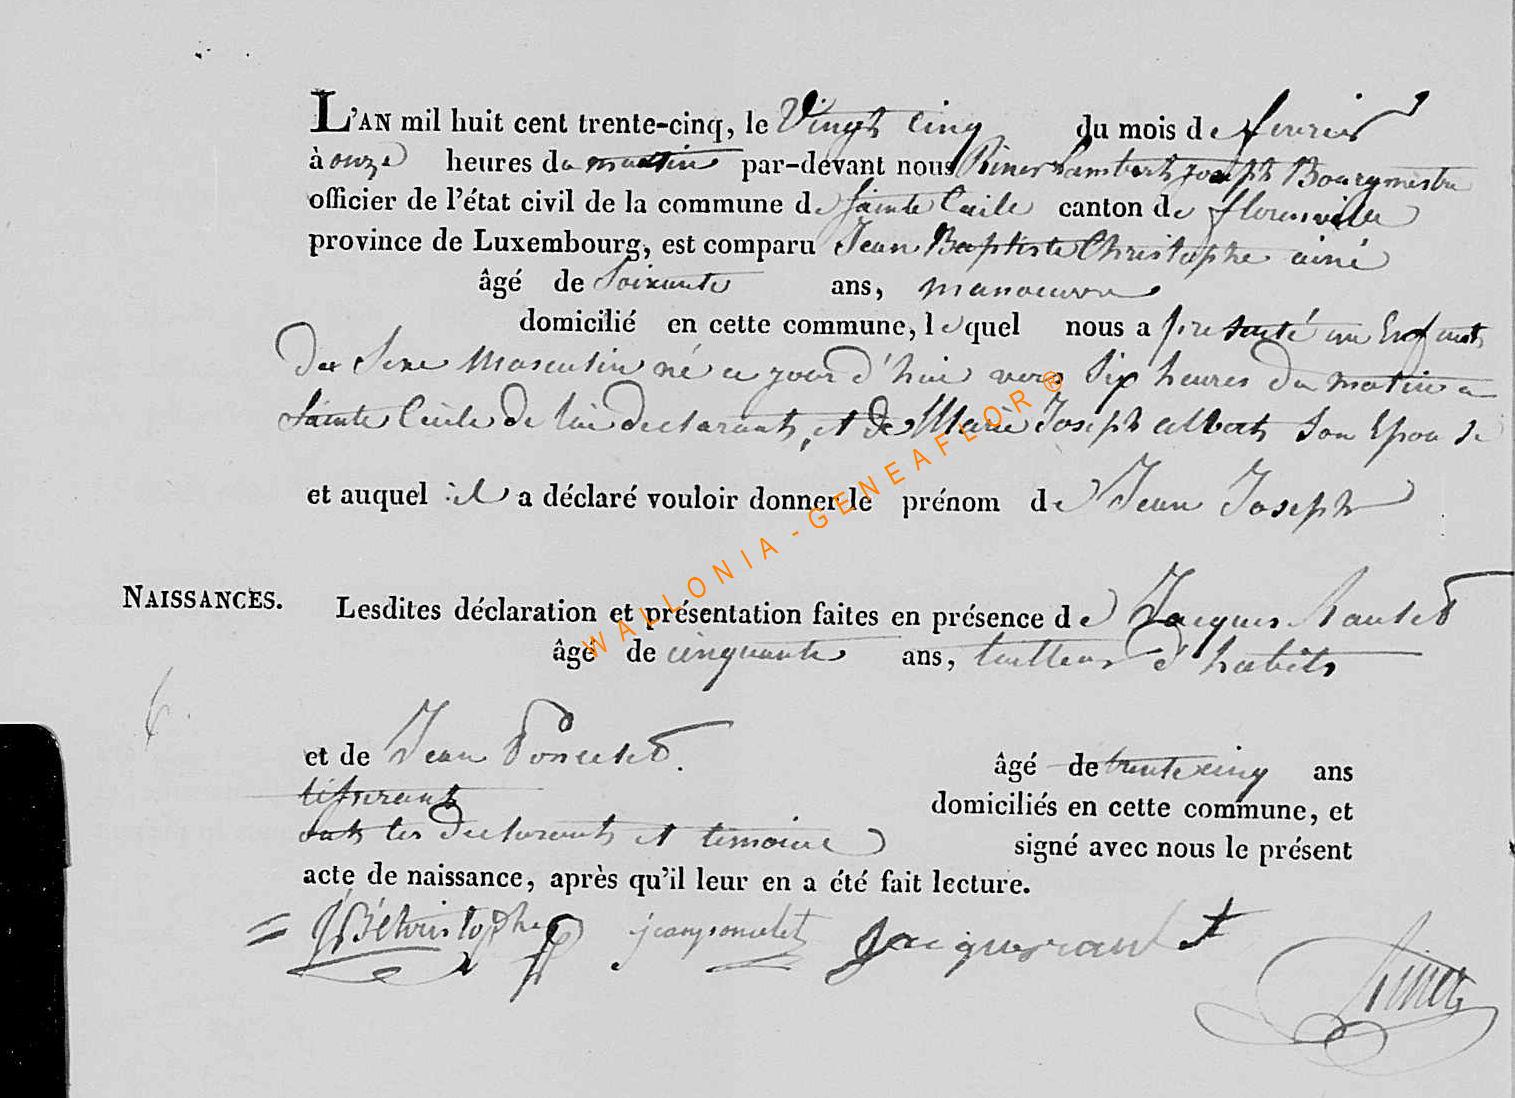 L'AN mil huit cent trente-cinq, le Vingt cinq du mois de fevrier
à onze heures du matin par-devant nous Lambert joseph Bourgmestre
officier de l'état civil de la commune de Sainte Cecile canton de florenville
province de Luxembourg, est comparu Jean Baptiste Christophe ainé
âgé de Soixante ans, manoeuvre
domicilié en cette commune, lequel nous a presenté un Enfant
du Sexe Masculin né ce jour d'hui vers Six heures du matin a
Sainte Cecile de lui declarant, et de Marie Joseph albert Son Epouse
et auquel il a déclaré vouloir donner le prénom de Jean Joseph
NAISSANCES.
Lesdites déclaration et présentation faites en présence de Jacques
âgé de cinquante ans, tailleur d'habits
et de Jean Poncelet âgé de trente cinq ans
tisserant domiciliés en cette commune, et
ont les declarant et temoins signé avec nous le présent
acte de naissance, après qu'il leur en a été fait lecture.
JB Christophe jean poncelet
WALLONIA - GENEAFLOR ®